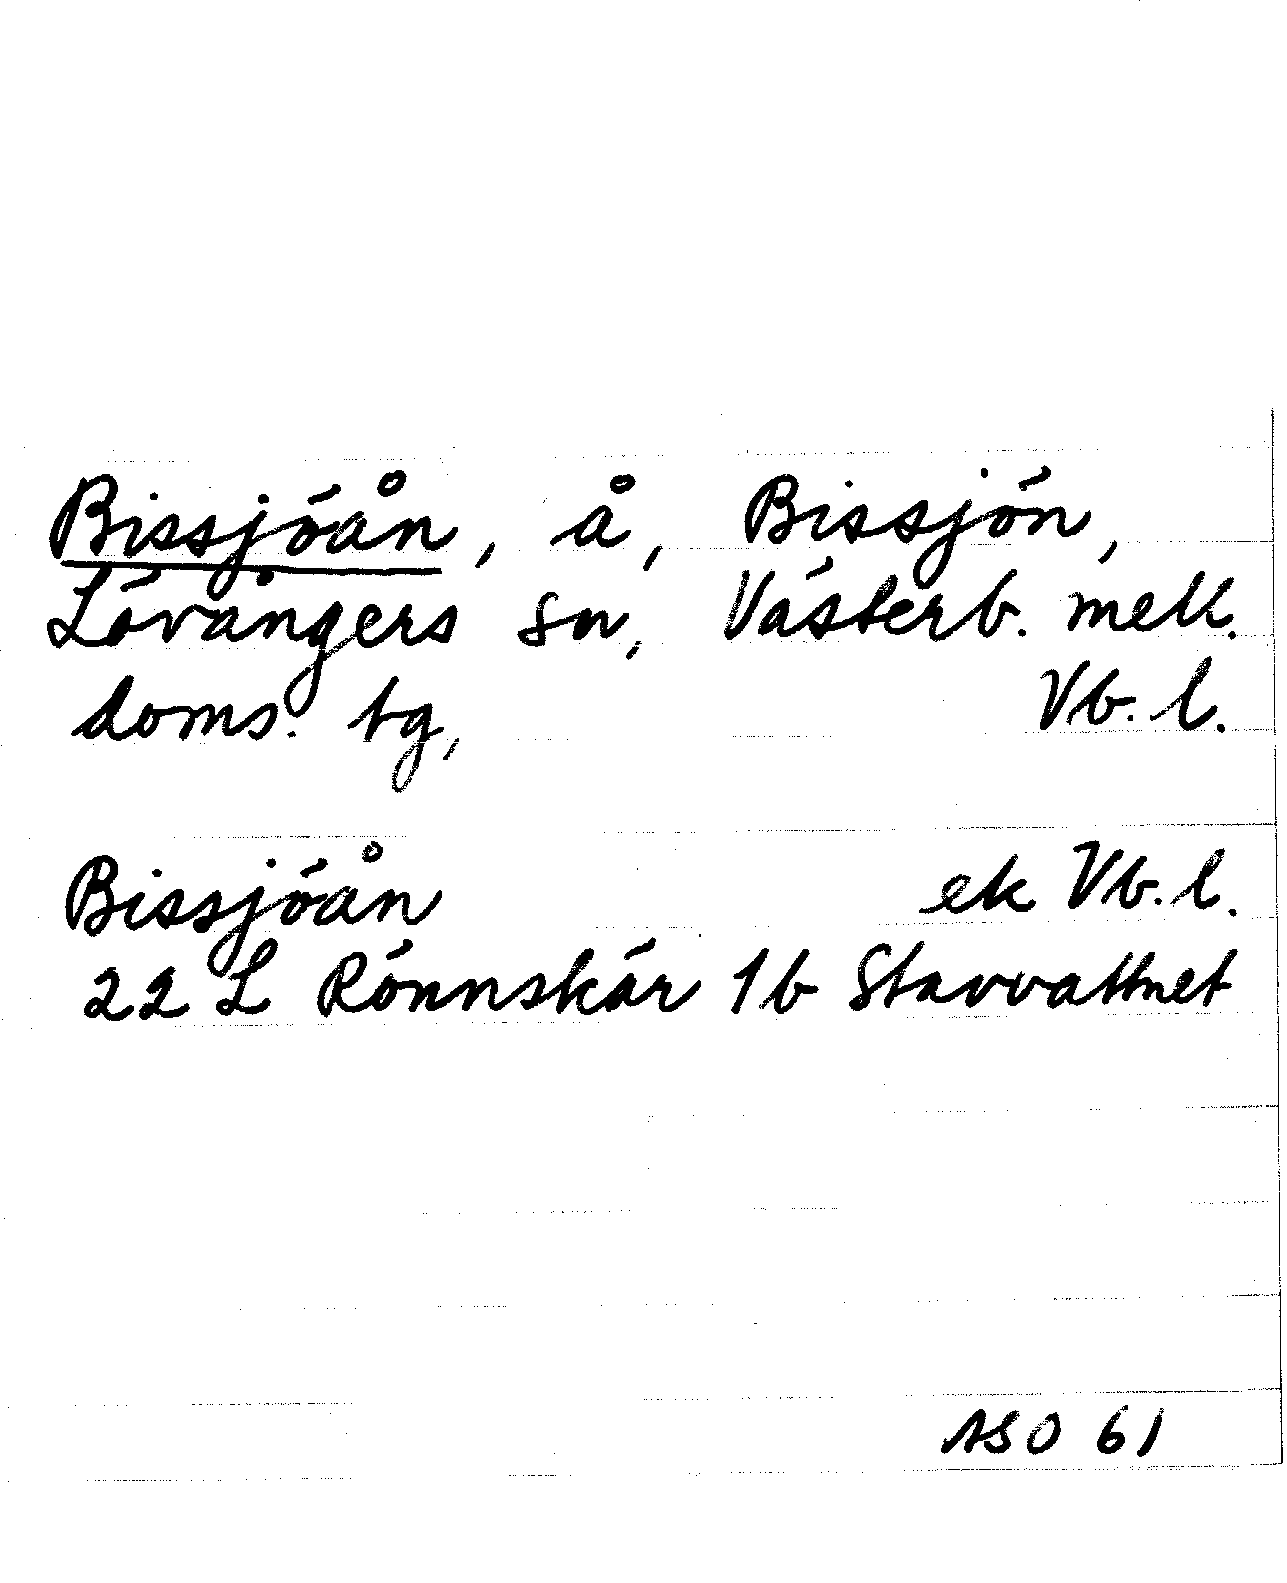 Bissjöån, å, Bissjön,
Lövångers sn, Västerb. mell.
doms. tg, Vb. l.
Bissjöån ek Vb. l.
22 L Rönnskär 1b Stavvattnet
ASO 61